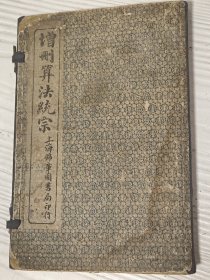 增刪算法統宗
上海錦章圖書局印行